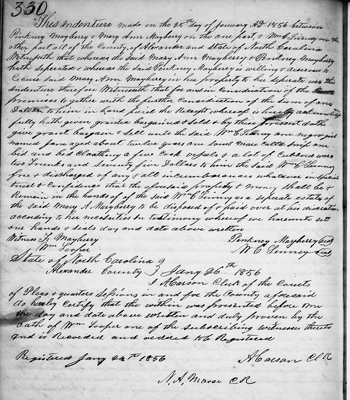 330
This Indenture made on the 25th day of January AD 1856 between
Pinkney Mayberry & Mary Ann Mayberry on the one part, & Wm C Linney on the
other part all of the County of Alexander and State of North Carolina
Witnesseth that whereas the said Mary Ann Mayberry & Pinkney Mayberry
hath separated & whereas the said Pinkney Mayberry is willing & anxious to
secure said Mary Ann Mayberry in her property to her separate use this
indenture therefore Witnesseth that for and in consideration of the
promises together with the further consideration of the sum of one
dollar to him in hand paid the Receipt whereof is hereby acknowledged
fully hath given granted bargained & sold & by these presents doth
give grant bargain & sell unto the said Wm C Linney one
named Jane aged about twelve years one sand mare calls Snip one
bed and bed Cloathing & five Cook vessels & a lot of cubbord ware
two Trunks and Seventy five Dollars to him the said Wm C Linney
free & discharged of any & all incumbrances whatever in special
trust & Confidence that the aforesaid property & money shall be &
Remain in the hands of of the said Wm C Linney as a separate estate of
the said Mary A Mayberry to be disposed of & paid over at his discretion
according to her necessities In testimony whereof we hereunto set
our hands & seals day and date above written
Witness J Mayberry Pinkney Mayberry Seal
Wm Cooper W C Linney Seal
State of North Carolina
Alexander County Jany 26th 1856
I A Carson Clerk of the Courts
of Pleas & quarters Sessions in and for the County aforesaid
do hereby Certify that the within was presented before me
the day and date above written and duly proven by the
oath of Wm Cooper one of the subscribing witnesses thereto
and is Recorded and ordered to be Registered
Registered Jany 26th 1856 A Carson Clk
N. A. Moose CR